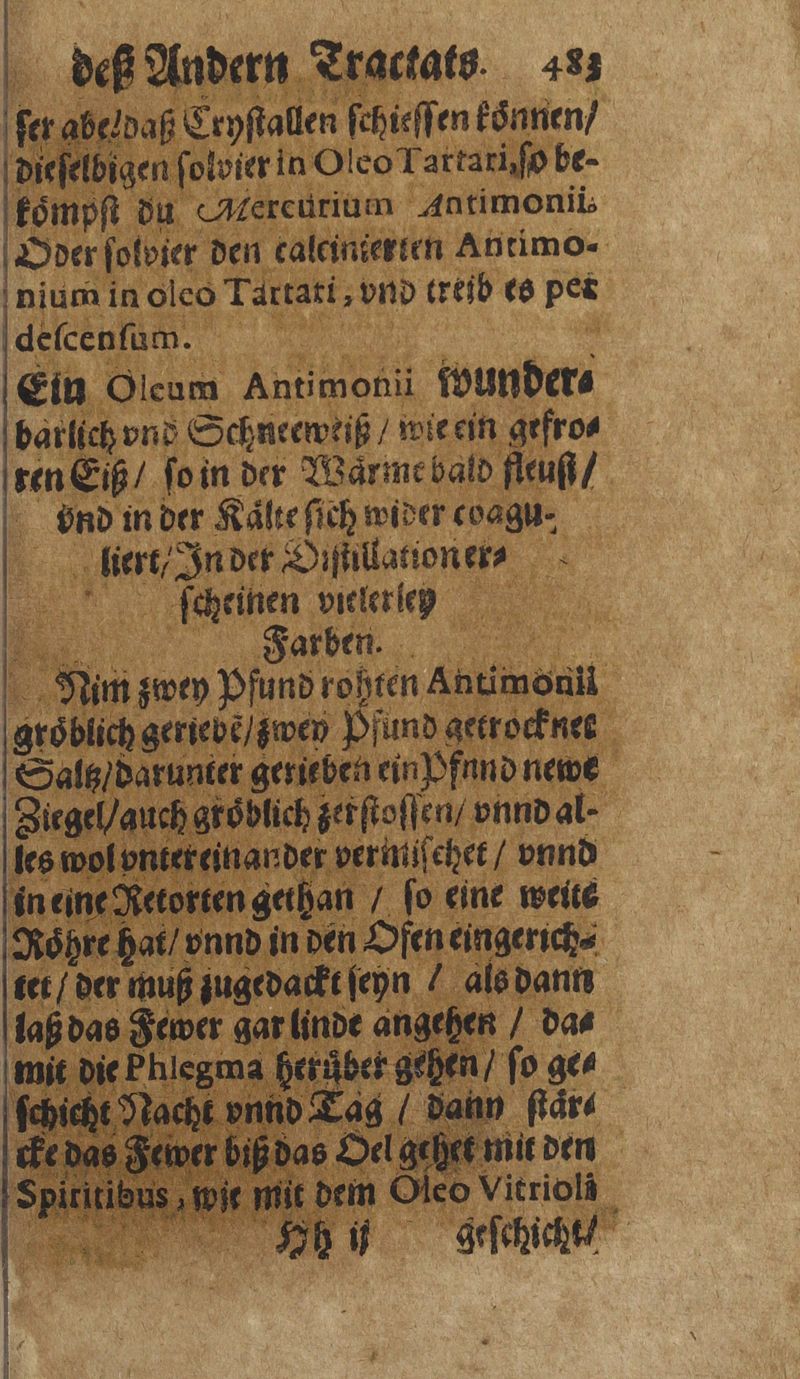 deß Andern Tractats. 483
ser abe/daß Crystallen schiessen können/
dieselbigen solvier in Oleo Tartari, so be-
kömpst du Mercurium Antimonii.
Oder solvier den calcinierten Antimo-
nium in oleo Tartari, vnd treib es per
descensum.
Ein Oleum Antimonii wunder-
barlich vnd Schneeweiß / wie ein gefro-
ren Eiß / so in der Wärme bald fleust /
vnd in der Kälte sich wider coagu-
liert / In der Distillation er-
scheinen vielerley
Farben.
Nim zwey Pfund rohten Antimonii
gröblich geriebẽ / zwey Pfund getrocknet
Saltz / darunter gerieben ein Pfnnd newe
Ziegel / auch gröblich zerstossen / vnnd al-
les wol vntereinander vermischet / vnnd
in eine Retorten gethan / so eine weite
Röhre hat / vnnd in den Ofen eingerich-
tet / der muß zugedackt seyn / als dann
laß das Fewer gar linde angehen / da-
mit die Phlegma herüber gehen / so ge-
schicht Nacht vnnd Tag / dann stär-
cke das Fewer biß das Oel gehet mit den
Spiritibus, wie mit dem Oleo Vitrioli
Hh ij geschicht /